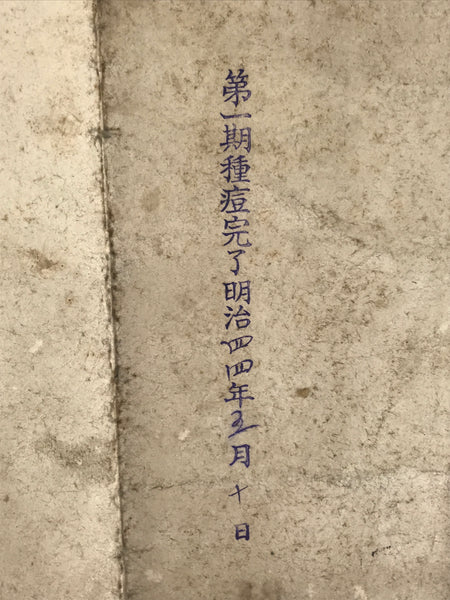 第一期種痘完了明治四四年五月十日